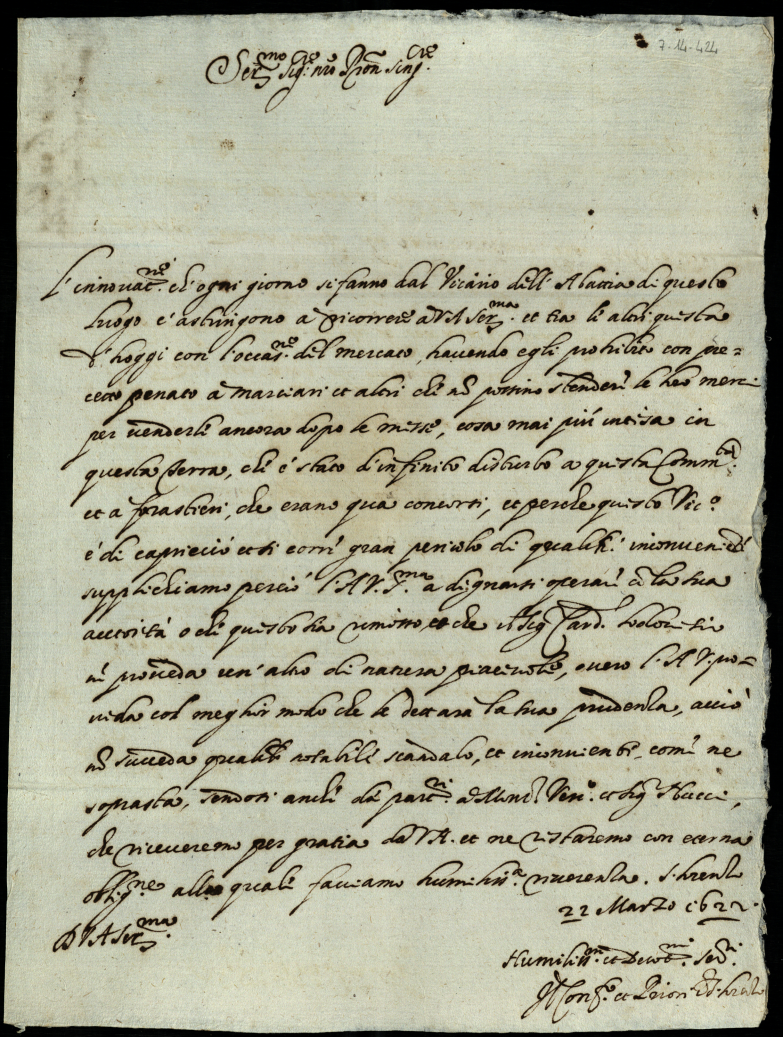 7-14-424
Ser.mo Sig.re n.ro Pron sing.re
L'innovat.ni ch'ogni giorno si fanno dal Vicario dell'Abattia di questo
luogo c'astringono a ricorrere a V A Ser.ma et tra le altre questa
d'hoggi con l'occas.ne del mercato, havendo egli prohibito con pre=
cetto penato a Marciari et altri che nõ possino stender' le lor merci
per venderle ancora dopo le messe, cosa mai più intesa in
questa Terra, ch'è stato d'infinito disturbo a questa Comm.tà
et a forastieri, che erano qua concorsi, et perche questo Vic.o
è di capriccio et si corre gran pericolo di qualch' inconveniente
supplichiamo perciò l'A V. S.ma a dignarsi operar' cõ la sua
autorità o che questo sia rimosso, et che il Sig.r Card.l
ni proveda un'altro di natura piacevole, overo l'A V. pro=
veda col meglior modo che le dettarà la sua prudenza, acciò
nõ succeda qualche notabile scandalo, et inconvenienti, come ne
soprasta, sendosi anche dà part.ri a Mons.r Ves.o et Sig.
che riceveremo per gratia da V A. et ne restaremo con eterna
oblig.ne alla quale facciamo humiliss.a riverenza. S. Lorenzo
22 Marzo 1622.
D V A Ser.ma
Humiliss.mi et Devot.mi Ser.ri
Il Conf.e et Priori di S. Lorenzo